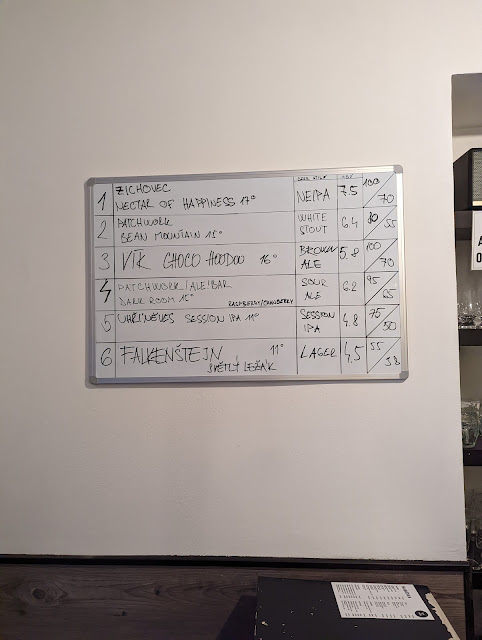 1 ZICHOVEC
NECTAR OF HAPPINESS 17° NEIPA 7.5 100/70
2 PATCHWORK
BEAN MOUNTAIN 15° WHITE STOUT 6.4 80/55
3 VIK CHOCO HOODOO 16° BROWN ALE 5.8 100/70
4 PATCHWORK/ALE!BAR
DARK ROOM 15° RASPBERRY/CRANBERRY SOUR ALE 6.2 95/65
5 UHŘÍNĚVES SESSION IPA 11° SESSION IPA 4.8 75/50
6 FALKENŠTEJN 11° LAGER 4,5 55/38
SVĚTLÝ LEŽÁK